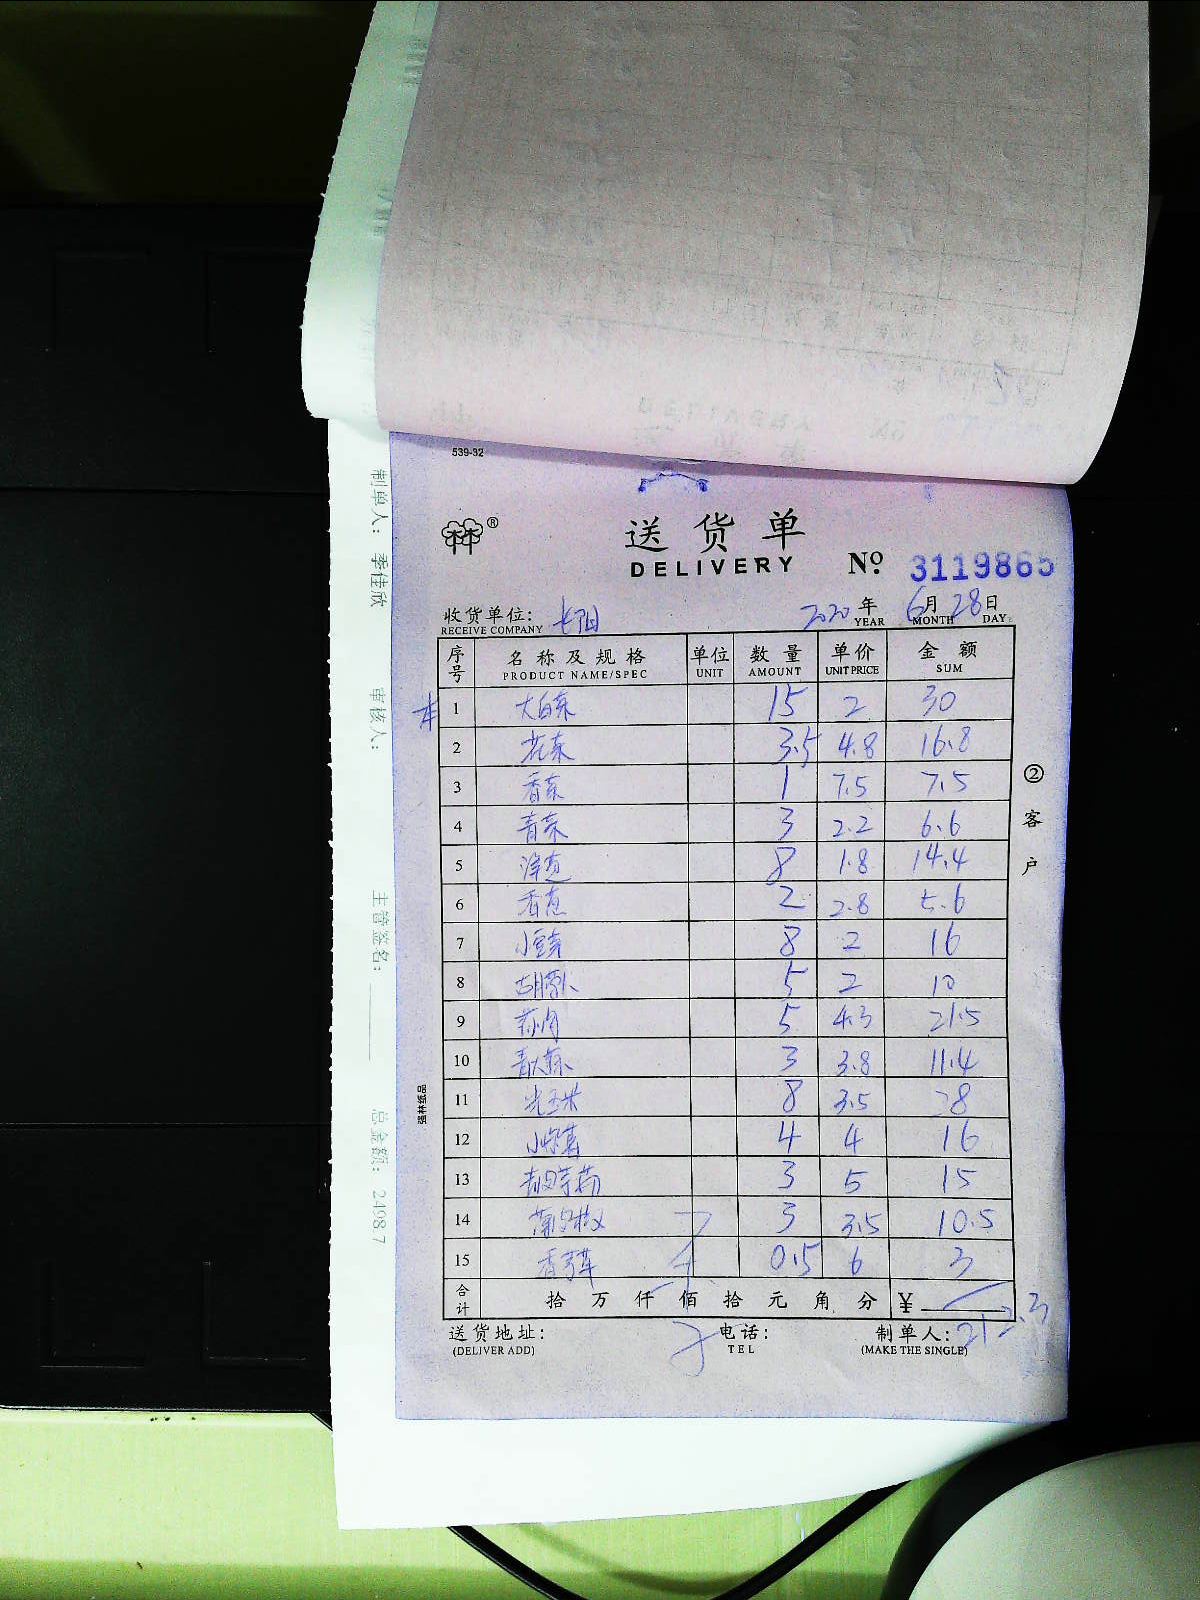 539-32
林®
送货单
DELIVERY No. 3119865
收货单位: 2020年 6月 28日
RECEIVE COMPANY YEAR MONTH DAY
序号 名称及规格 单位 数量 单价 金额
PRODUCT NAME/SPEC UNIT AMOUNT UNIT PRICE SUM
1 大白菜 15 2 30
2 花菜 3.5 4.8 16.8
3 香菜 1 7.5 7.5
4 青菜 3 2.2 6.6
5 洋葱 8 1.8 14.4
6 香葱 2 2.8 5.6
7 小豆芽 8 2 16
8 胡萝卜 5 2 10
9 5 4.3 21.5
10 3 3.8 11.4
11 光玉米 8 3.5 28
12 4 4 16
13 3 5 15
14 3 3.5 10.5
15 0.5 6 3
合计 拾 万 仟 佰 拾 元 角 分 ¥
212.3
送货地址: 电话: 制单人:
(DELIVER ADD) TEL (MAKE THE SINGLE)
②客户
强林纸品
制单人: 季佳欣
审核人:
主管签名:
总金额: 2498.7